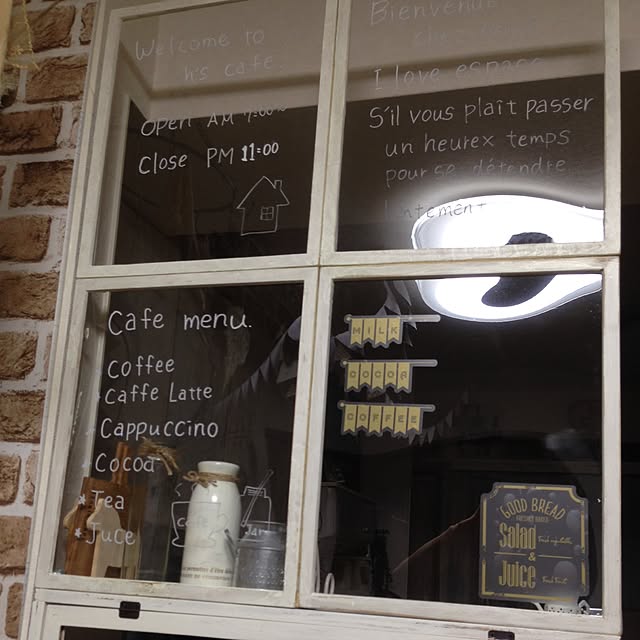 Welcome to
h's cafe.
Open AM
Close PM 11:00
Bienvenue
I love espace
S'il vous plaît passer
un heurex temps
pour se détendre
lentement
Cafe menu.
Coffee
Caffe Latte
Cappuccino
Cocoa
Tea
Juce
MILK
COCOA
COFFEE
GOOD BREAD
Salad
&
Juice